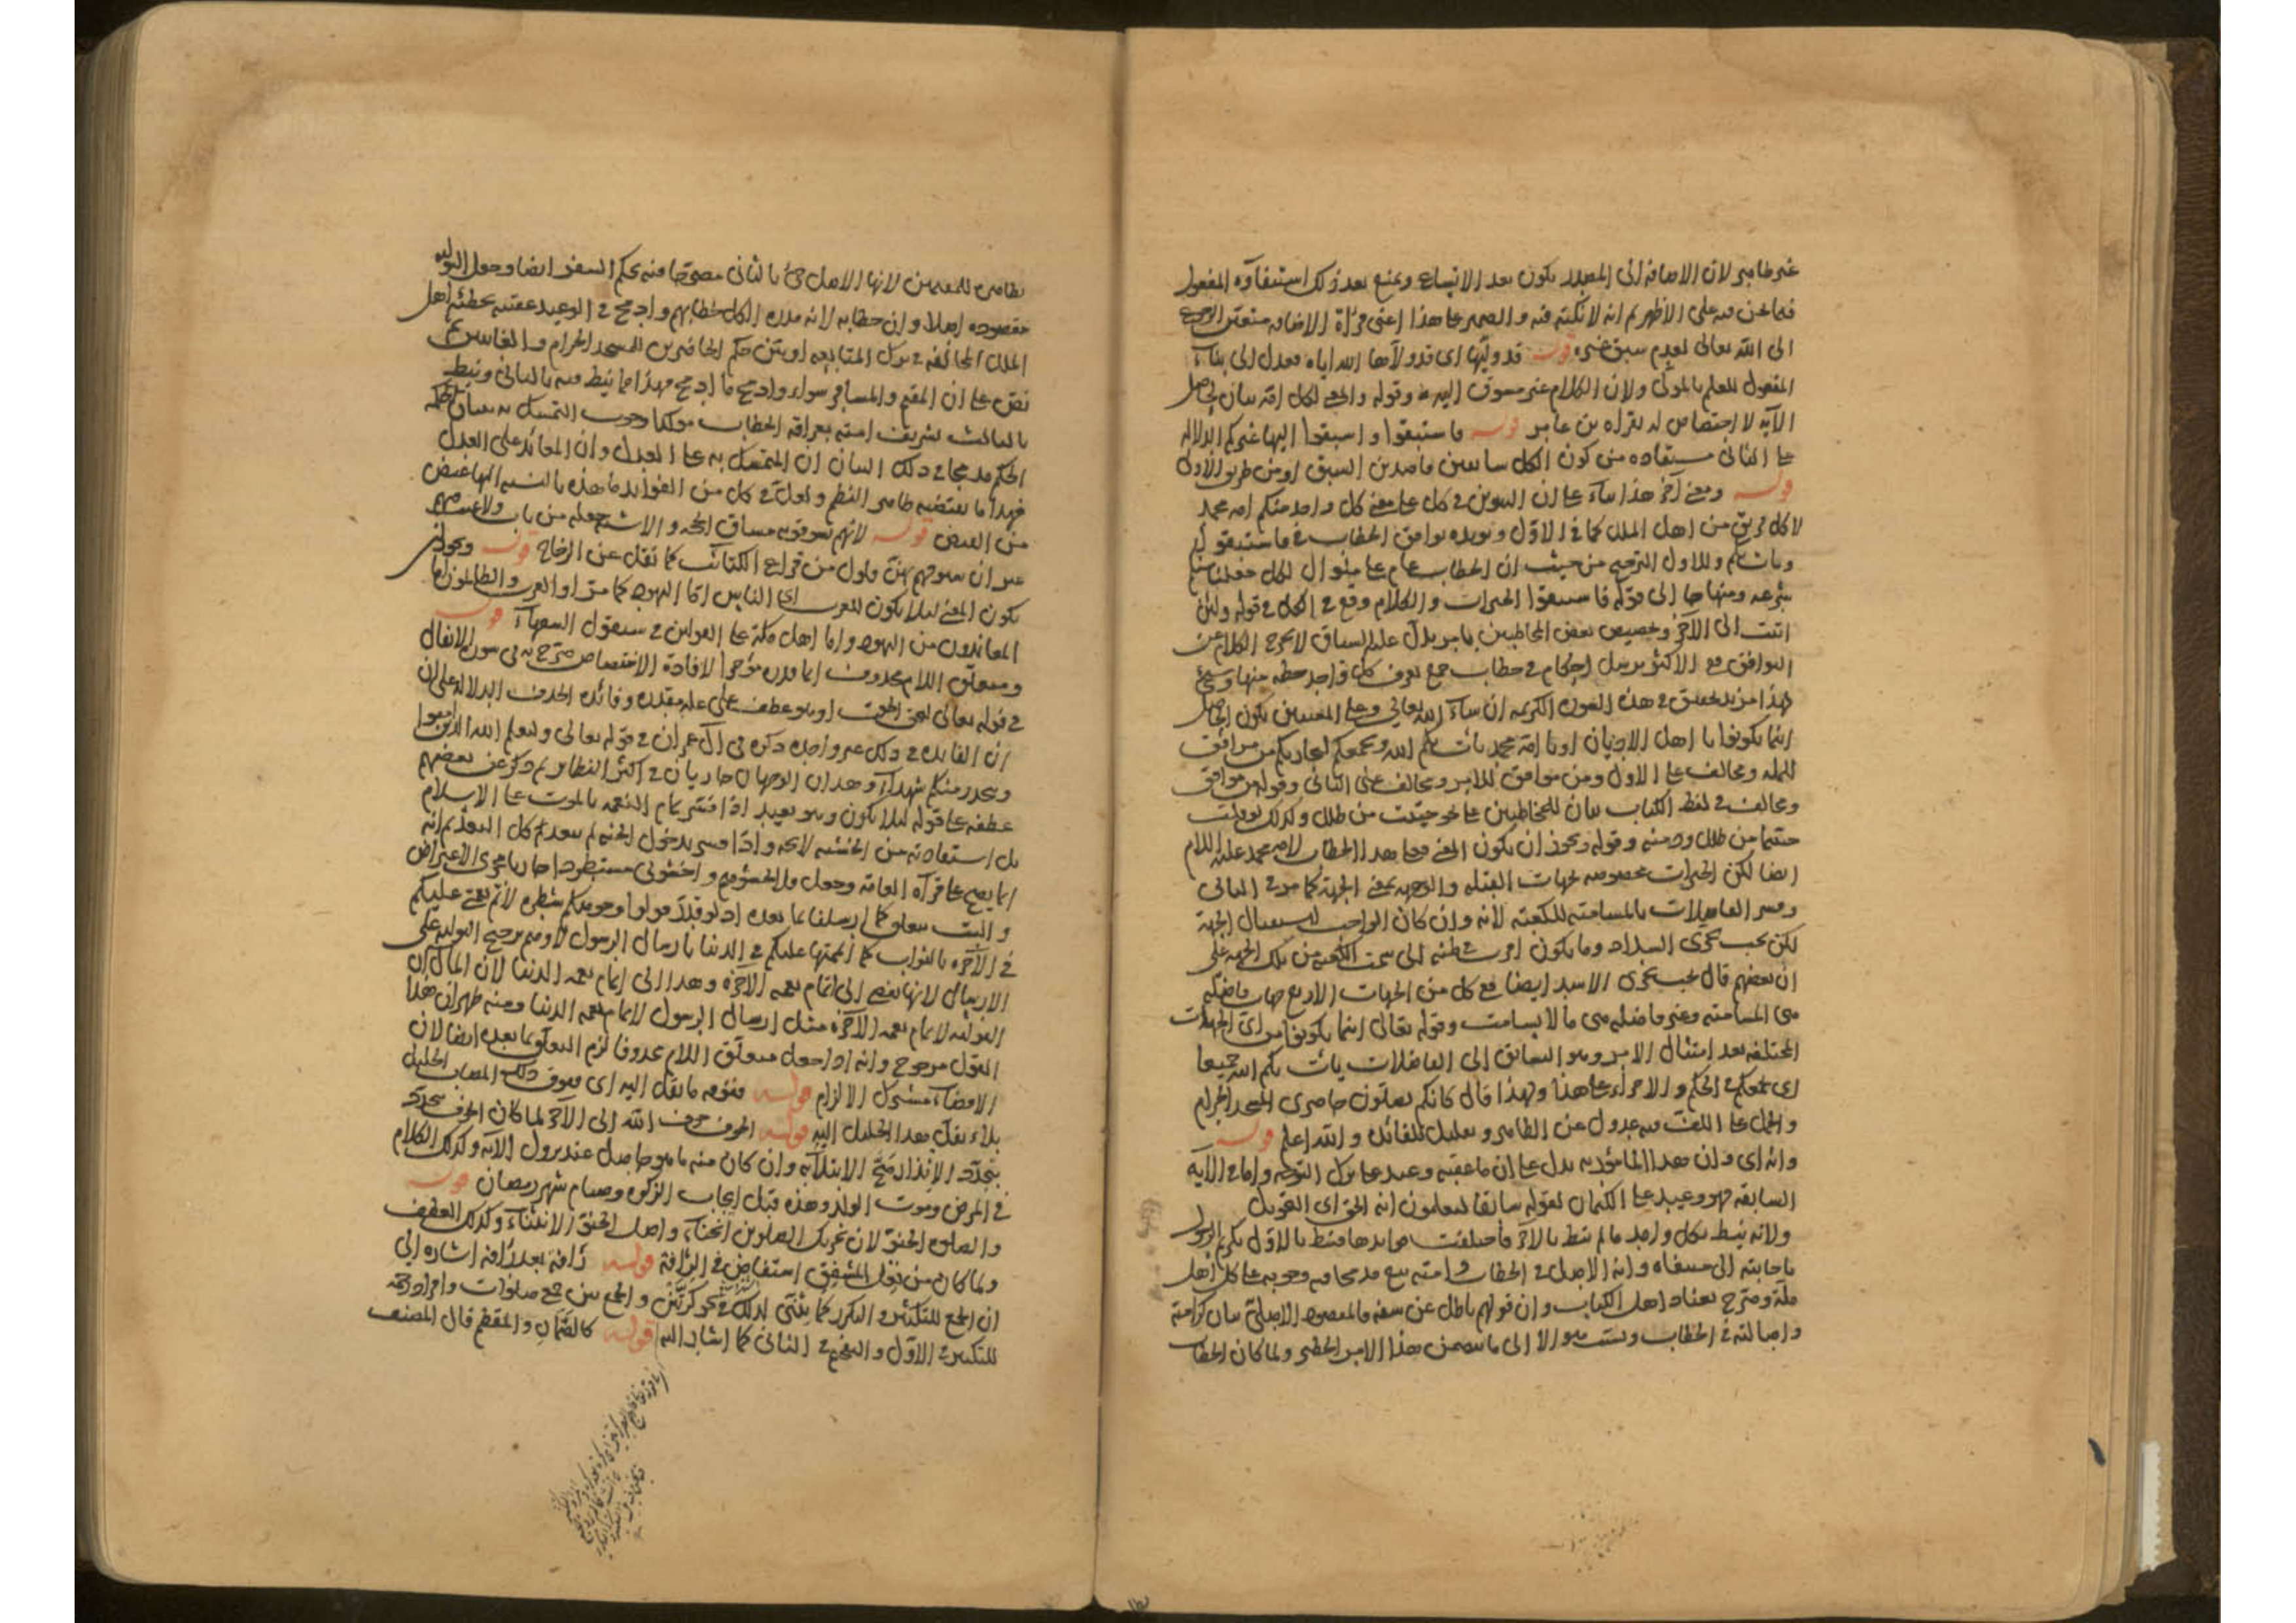 غير ظاهر لان الاضافة الى المصدر يكون بعد الاتساع ويمنع بعد ذلك استيفاؤه المفعول
فيما نحن فيه على الاظهر ثم انه لا نكتة فيه والضمير على هذا اعنى قراة الاضافة متعين الرجوع
الى الله تعالى لعدم سبق غيره قوله قد وليها اى قد ولاها الله اياه فعدل الى بناء
المفعول للعلم بالمولى ولان الكلام غير مسوق اليه وقوله والمعنى لكل امة بيان لحاصل
الآية لا اختصاص له بقراة بن عامر قوله فاستبقوا واسبقوا اليها غيركم الدلالة
على الثانى مستفادة من كون الكل سابقين قاصدين السبق او من طريق الاولى
قوله ومعنى آخر هذا بناء على ان التنوين فى كل على معنى كل واحد منكم امة محمد
لا كل فريق من اهل الملل كما فى الاول ويؤيده توافق الخطاب فى فاستبقوا
ويات بكم وللاول الترجيح من حيث ان الخطاب عام على منوال لكل جعلنا منكم
شرعة ومنهاجا الى قوله فاستبقوا الخيرات والكلام وقع فى الكل فى قوله ولئن
اتيت الى الآخر وتخصيص بعض المخاطبين بامر يدل عليه السياق لا يخرج الكلام عن
التوافق مع الاكثر احكام فى خطاب جمع يعرف كل واحد حظه منها
لهذا مزيد تحقيق فى هذه السورة الكريمة ان شاء الله تعالى وعلى المعنيين يكون الحاصل
اينما تكونوا يا اهل الاديان او يا امة محمد يات بكم الله ويجمعكم من موافق
للملة ومخالف على الاول ومن موافق للامر ومخالف على الثانى وقوله من موافق
ومخالف فى لفظ الكتاب بيان للمخاطبين على نحو حييت من طلل وكذلك لو قلت
حييتما من طلل ودمنة وقوله ويجوز ان يكون المعنى فعلى هذا الخطاب لامة محمد عليه السلام
ايضا لكن الخيرات مخصوصة بجهات القبلة والوجهة بمعنى الجهة كما مر فى الثانى
وفسر الفاضلات بالمسامتة للكعبة لانه وان كان الواجب استقبال الجهة
لكن يجب تحرى السداد وما يكون اقرب الى سمت الكعبة من تلك الجهة على
ان بعضهم قال يجب تحرى الاسد ايضا فمع كل من الجهات الاربع جهات فاضلة
هى المسامتة وغير فاضلة هى ما لا يسامت وقوله تعالى اينما تكونوا من اى الجهات
المختلفة بعد امتثال الامر وهو التسابق الى الفاضلات يات بكم الله جميعا
اى يجمعكم فى الحكم والاجزاء على هذا ولهذا قال كانكم تصلون حاضرى المسجد الحرام
والحمل على اللف فيه عدول عن الظاهر وتقليل للفائدة والله اعلم قوله
وانه اى وان هذا المامور به يدل على ان ما عقبه وعيد على ترك التوجه واما فى الآية
السابقة فهو وعيد على الكتمان لقوله سابقا ليعلمون انه الحق اى التحويل
ولانه نيط بكل واحد ما لم ينط بالآخر فاختلفت فوائدها فنيط بالاول تكريم الرسول
باجابته الى مبتغاه وانه الاصل فى الخطاب وامته تبع مدمجا فيه وجوبه على كل اهل
ملة وصرح بعناد اهل الكتاب وان قولهم باطل عن سفه فالمقصود الاصلى بيان كرامته
واصالته فى الخطاب الاولى ما يتضمن هذا الامر الخطير ولما كان الخطاب
بظاهره للمقيمين لانها الاصل جئ بالثانى مصرحا فيه بحكم السفر ايضا وجعل التولية
مقصوده اصلا وان خطابه لانه مدره الكل خطابهم وادمج فى الوعيد عقيبه تخطئة اهل
الملل المخالفة فى ترك المتابعة او بين حكم الحاضرين للمسجد الحرام والغائبين ثم
نص على ان المقيم والمسافر سواء وادمج ما ادمج فهذا ما نيط فيه بالثانى ونيط
بالثالث تشريف امته بعراقة الخطاب مؤكدا وجوب التمسك به ببيان حكمة
الحكم مدمجا فى ذلك البيان ان المتمسك به على العدل وان المعاند على العدل
فهذا ما يقتضيه ظاهر النظم ولعل فى كل من الفوائد ما هذه بالنسبة اليها غيض
من الفيض قوله لانهم يسوقونه مساق الحجة والاشبه جعله من باب ولا عيب فيهم
غير ان سيوفهم بهن فلول من قراع الكتائب كما نقل عن الزجاج قوله ويجوز ان
يكون المعنى لئلا يكون للعرب اى الناس اما اليهود كما مر او العرب والظالمون اما
المعاندون من اليهود واما اهل مكة على القولين فى سيقول السفهاء قوله
ومتعلق اللام محذوف انما قدره مؤخرا لافادة الاختصاص صرح به فى سورة الانفال
فى قوله تعالى ليحق الحق او هو عطف على علة مقدرة وفائدة الحذف الدلالة على ان
ان الفائدة فى ذلك غير واحدة ذكره فى آل عمران فى قوله تعالى وليعلم الله الذين آمنوا
ويتخذ منكم شهداء وهذان الوجهان جاريان فى اكثر النظائر ثم ذكر عن بعضهم
عطفه على قوله لئلا يكون وهو بعيد اذا فسر تمام النعمة بالموت على الاسلام
بل استفادته من الخشية لائحة واذا فسر بدخول الجنة لم يبعد كل البعد ثم انه
انما يصح على قراة العامة وجعل فلا تخشوهم واخشونى مستطردا جاريا مجرى الاعتراض
والبت بتعلق كما ارسلنا بما بعده اذ لو قلت فولوا وجوهكم شطره لاتم نعمتى عليكم
فى الآخرة بالثواب كما اتممتها عليكم فى الدنيا بارسال الرسول لاوهم ترجيح التولية على
الارسال لانها تفضى الى اتمام نعمة الآخرة وهذا الى اتمام نعمة الدنيا لان المآل ان
التولية لاتمام نعمة الآخرة مثل ارسال الرسول لاتمام نعمة الدنيا ومنه ظهر ان هذا
القول مرجوح وانه اذا جعل متعلق اللام محذوفا لزم التعلق بما بعده ايضا لان
الافضاء مشترك الالزام قوله
بلاء نقل هذا الجليل اليه قوله الخوف خوف الله الى الآخر لما كان الخوف يتجدد
بتجدد الانذار صح الابتلاء به وان كان منه ما هو حاصل عند نزول الآية وكذلك الكلام
فى المرض وموت الولد وهذه قبل ايجاب الزكوة وصيام شهر رمضان قوله
والصلوة الحنو لان تحريك الصلوين انحناء واصل الحنو الانثناء وكذلك العطف
ولما كان من فعل المشفق استفاض فى الرأفة قوله رأفة بعد رأفة اشارة الى
ان الجمع للتكثير والتكرر كما يثنى لذلك فى نحو كرتين والجمع بين جمع صلوات وافراد رحمة
للتكثير فى الاول والتفخيم فى الثانى كما اشار اليه قوله كالصمان والمقطم قال المصنف